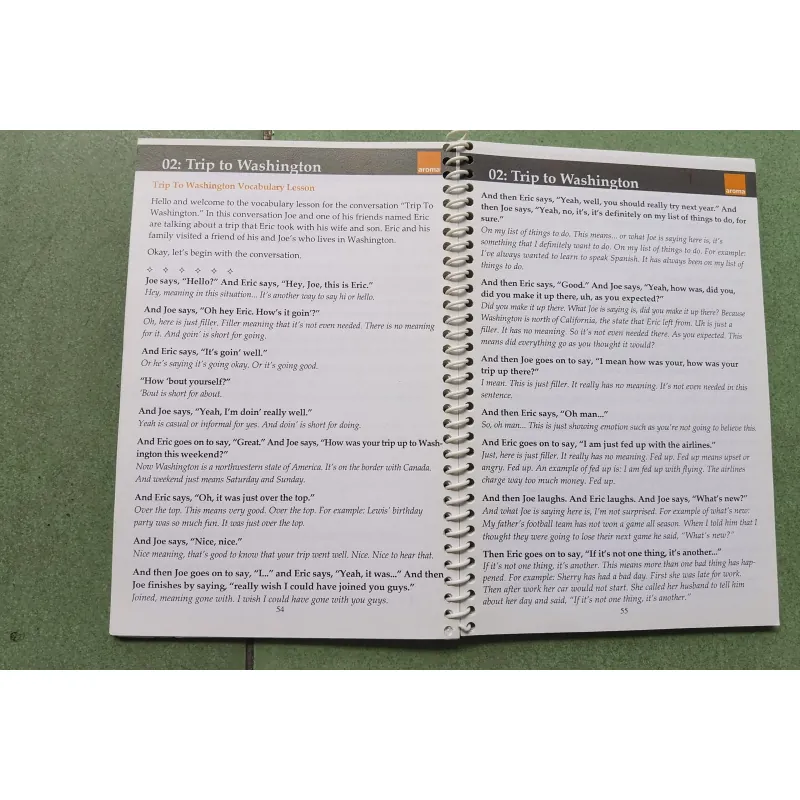 02: Trip to Washington
aroma
Trip To Washington Vocabulary Lesson
Hello and welcome to the vocabulary lesson for the conversation “Trip To
Washington.” In this conversation Joe and one of his friends named Eric
are talking about a trip that Eric took with his wife and son. Eric and his
family visited a friend of his and Joe's who lives in Washington.
Okay, let's begin with the conversation.
Joe says, “Hello?” And Eric says, “Hey, Joe, this is Eric.”
Hey, meaning in this situation... It's another way to say hi or hello.
And Joe says, “Oh hey Eric. How's it goin'?”
Oh, here is just filler. Filler meaning that it's not even needed. There is no meaning
for it. And goin' is short for going.
And Eric says, “It's goin' well.”
Or he's saying it's going okay. Or it's going good.
“How 'bout yourself?”
'Bout is short for about.
And Joe says, “Yeah, I'm doin' really well.”
Yeah is casual or informal for yes. And doin' is short for doing.
And Eric goes on to say, “Great.” And Joe says, “How was your trip up to Wash-
ington this weekend?”
Now Washington is a northwestern state of America. It's on the border with Canada.
And weekend just means Saturday and Sunday.
And Eric says, “Oh, it was just over the top.”
Over the top. This means very good. Over the top. For example: Lewis' birthday
party was so much fun. It was just over the top.
And Joe says, “Nice, nice.”
Nice meaning, that's good to know that your trip went well. Nice. Nice to hear that.
And then Joe goes on to say, “I...” and Eric says, “Yeah, it was...” And then
Joe finishes by saying, “really wish I could have joined you guys.”
Joined, meaning gone with. I wish I could have gone with you guys.
54
02: Trip to Washington
aroma
And then Eric says, “Yeah, well, you should really try next year.” And
then Joe says, “Yeah, no, it's, it's definitely on my list of things to do, for
sure.”
On my list of things to do. This means... or what Joe is saying here is, it's
something that I definitely want to do. On my list of things to do. For example:
I've always wanted to learn to speak Spanish. It has always been on my list of
things to do.
And then Eric says, “Good.” And Joe says, “Yeah, how was, did you,
did you make it up there, uh, as you expected?”
Did you make it up there. What Joe is saying is, did you make it up there? Because
Washington is north of California, the state that Eric left from. Uh is just a
filler. It has no meaning. So it's not even needed there. As you expected. This
means did everything go as you thought it would?
And then Joe goes on to say, “I mean how was your, how was your
trip up there?”
I mean. This is just filler. It really has no meaning. It's not even needed in this
sentence.
And then Eric says, “Oh man...”
So, oh man... This is just showing emotion such as you're not going to believe this.
And Eric goes on to say, “I am just fed up with the airlines.”
Just, here is just filler. It really has no meaning. Fed up. Fed up means upset or
angry. Fed up. An example of fed up is: I am fed up with flying. The airlines
charge way too much money. Fed up.
And then Joe laughs. And Eric laughs. And Joe says, “What's new?”
And what Joe is saying here is, I'm not surprised. For example of what's new:
My father's football team has not won a game all season. When I told him that I
thought they were going to lose their next game he said, “What's new?”
Then Eric goes on to say, “If it's not one thing, it's another...”
If it's not one thing, it's another. This means more than one bad thing has hap-
pened. For example: Sherry has had a bad day. First she was late for work.
Then after work her car would not start. She called her husband to tell him
about her day and said, “If it's not one thing, it's another.”
55